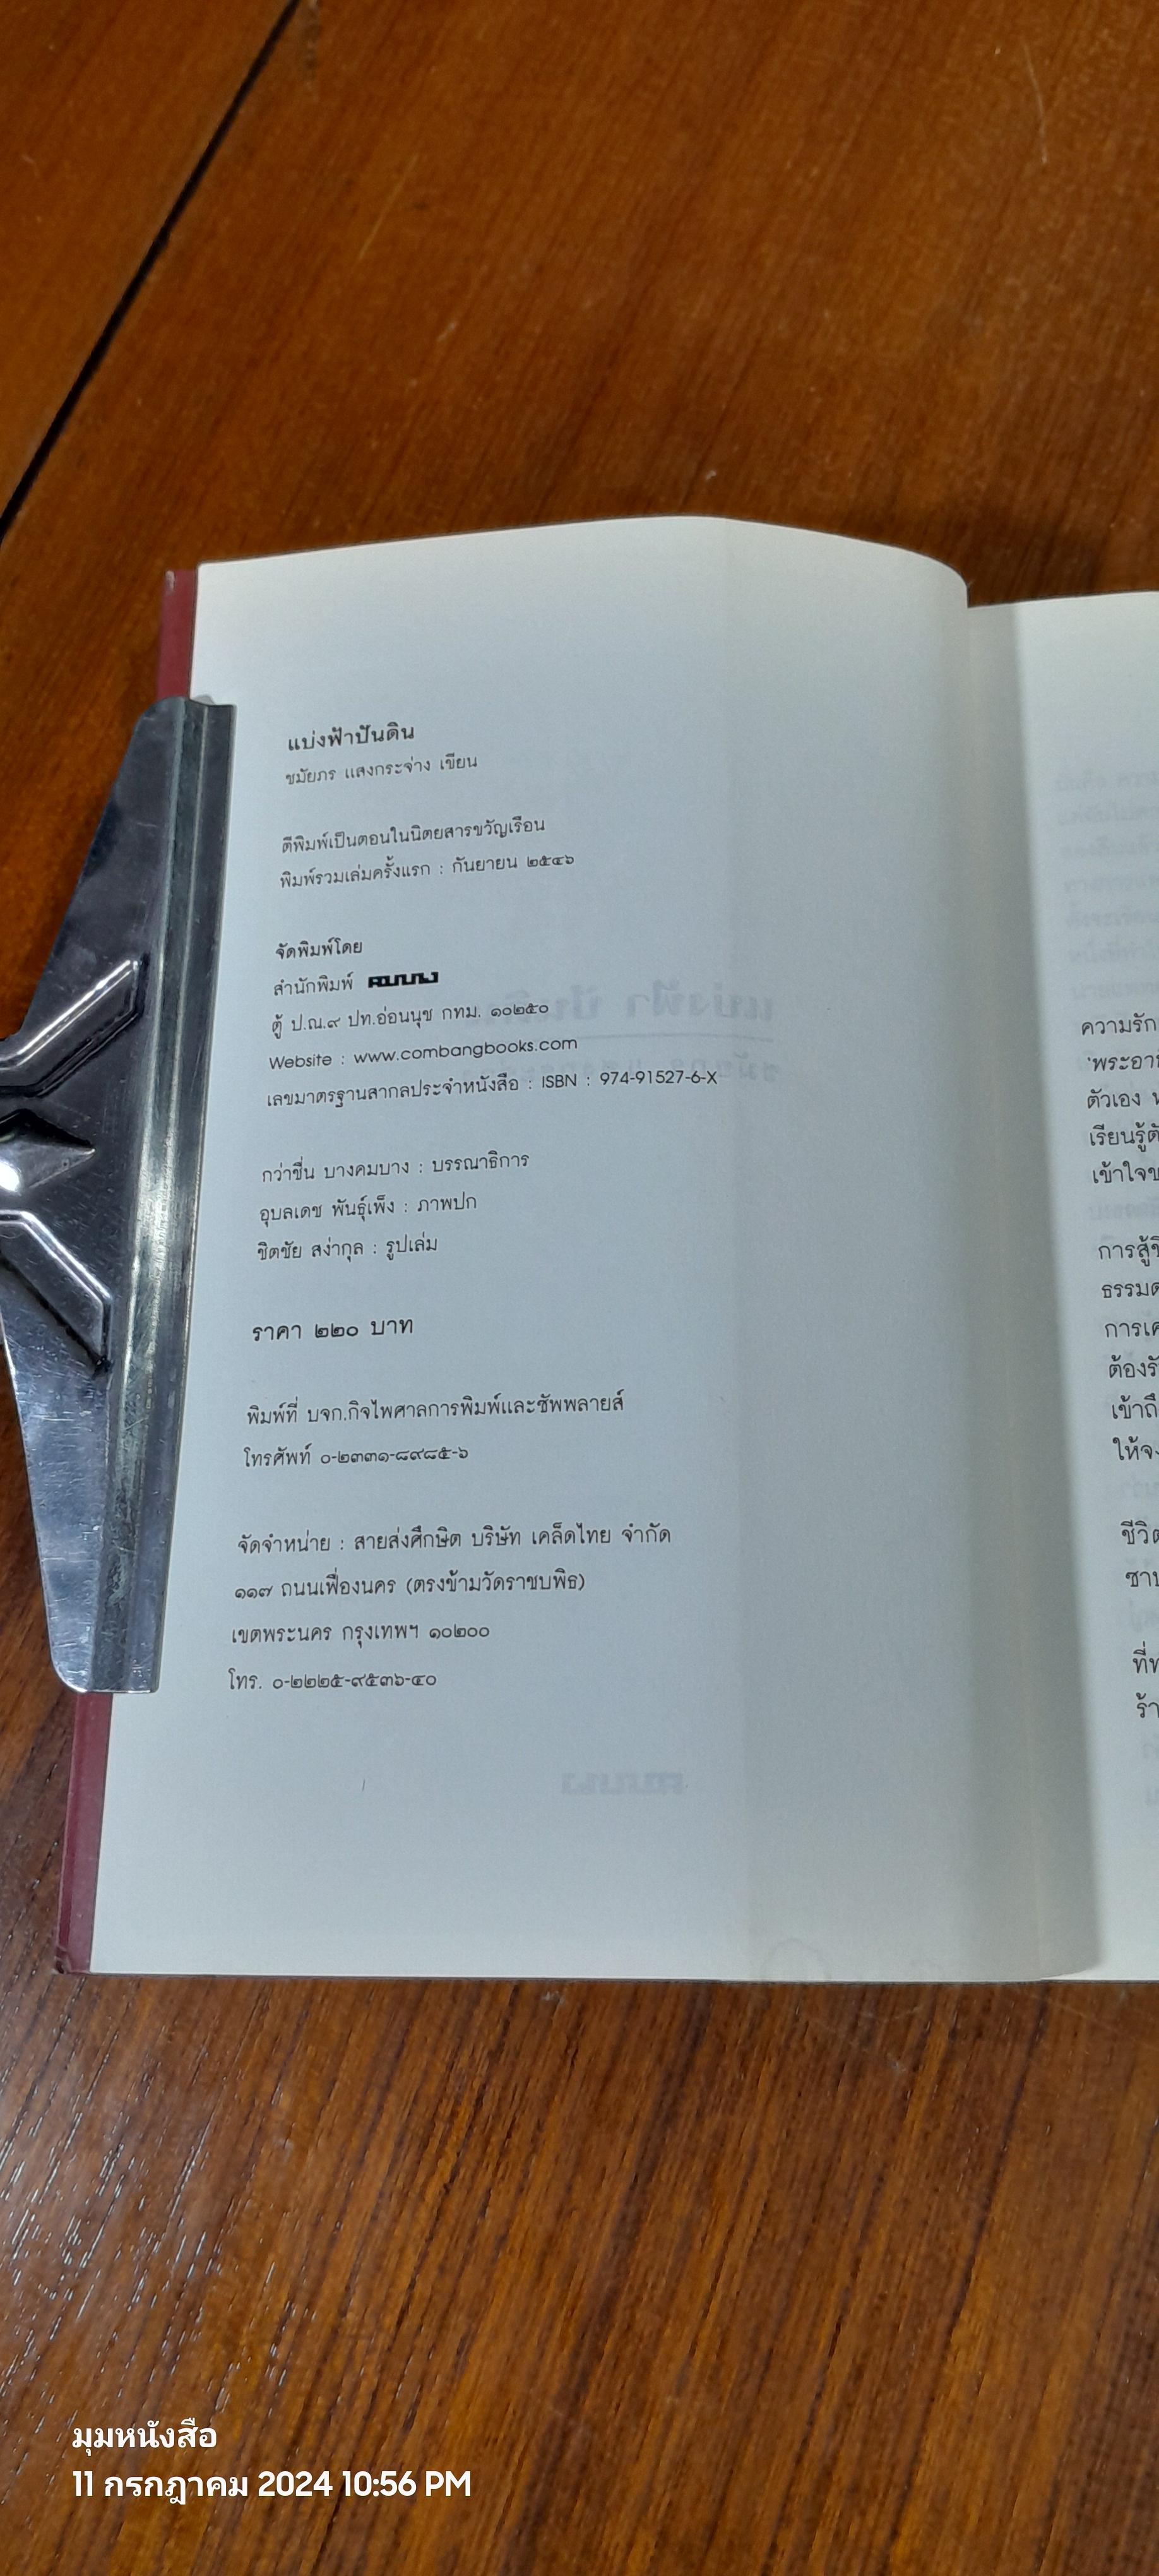 แบ่งฟ้าปันดิน
ชมัยภร แสงกระจ่าง เขียน
ตีพิมพ์เป็นตอนในนิตยสารขวัญเรือน
พิมพ์รวมเล่มครั้งแรก : กันยายน ๒๕๔๖
จัดพิมพ์โดย
สำนักพิมพ์ คมบาง
ตู้ ป.ณ.๙ ปท.อ่อนนุช กทม. ๑๐๒๕๐
Website : www.combangbooks.com
เลขมาตรฐานสากลประจำหนังสือ : ISBN : 974-91527-6-X
กว่าชื่น บางคมบาง : บรรณาธิการ
อุบลเดช พันธุ์เพ็ง : ภาพปก
ชิตชัย สง่ากุล : รูปเล่ม
ราคา ๒๒๐ บาท
พิมพ์ที่ บจก.กิจไพศาลการพิมพ์และซัพพลายส์
โทรศัพท์ ๐-๒๓๓๑-๘๙๘๕-๖
จัดจำหน่าย : สายส่งศึกษิต บริษัท เคล็ดไทย จำกัด
๑๑๗ ถนนเฟื่องนคร (ตรงข้ามวัดราชบพิธ)
เขตพระนคร กรุงเทพฯ ๑๐๒๐๐
โทร. ๐-๒๒๒๕-๙๕๓๖-๔๐
ความรัก
ตัวเอง
เรียนรู้
การสู้
การเ
ต้องรั
เข้าถึ
ให้จ
ชีวิต
ที่
ร้า
มุมหนังสือ
11 กรกฎาคม 2024 10:56 PM